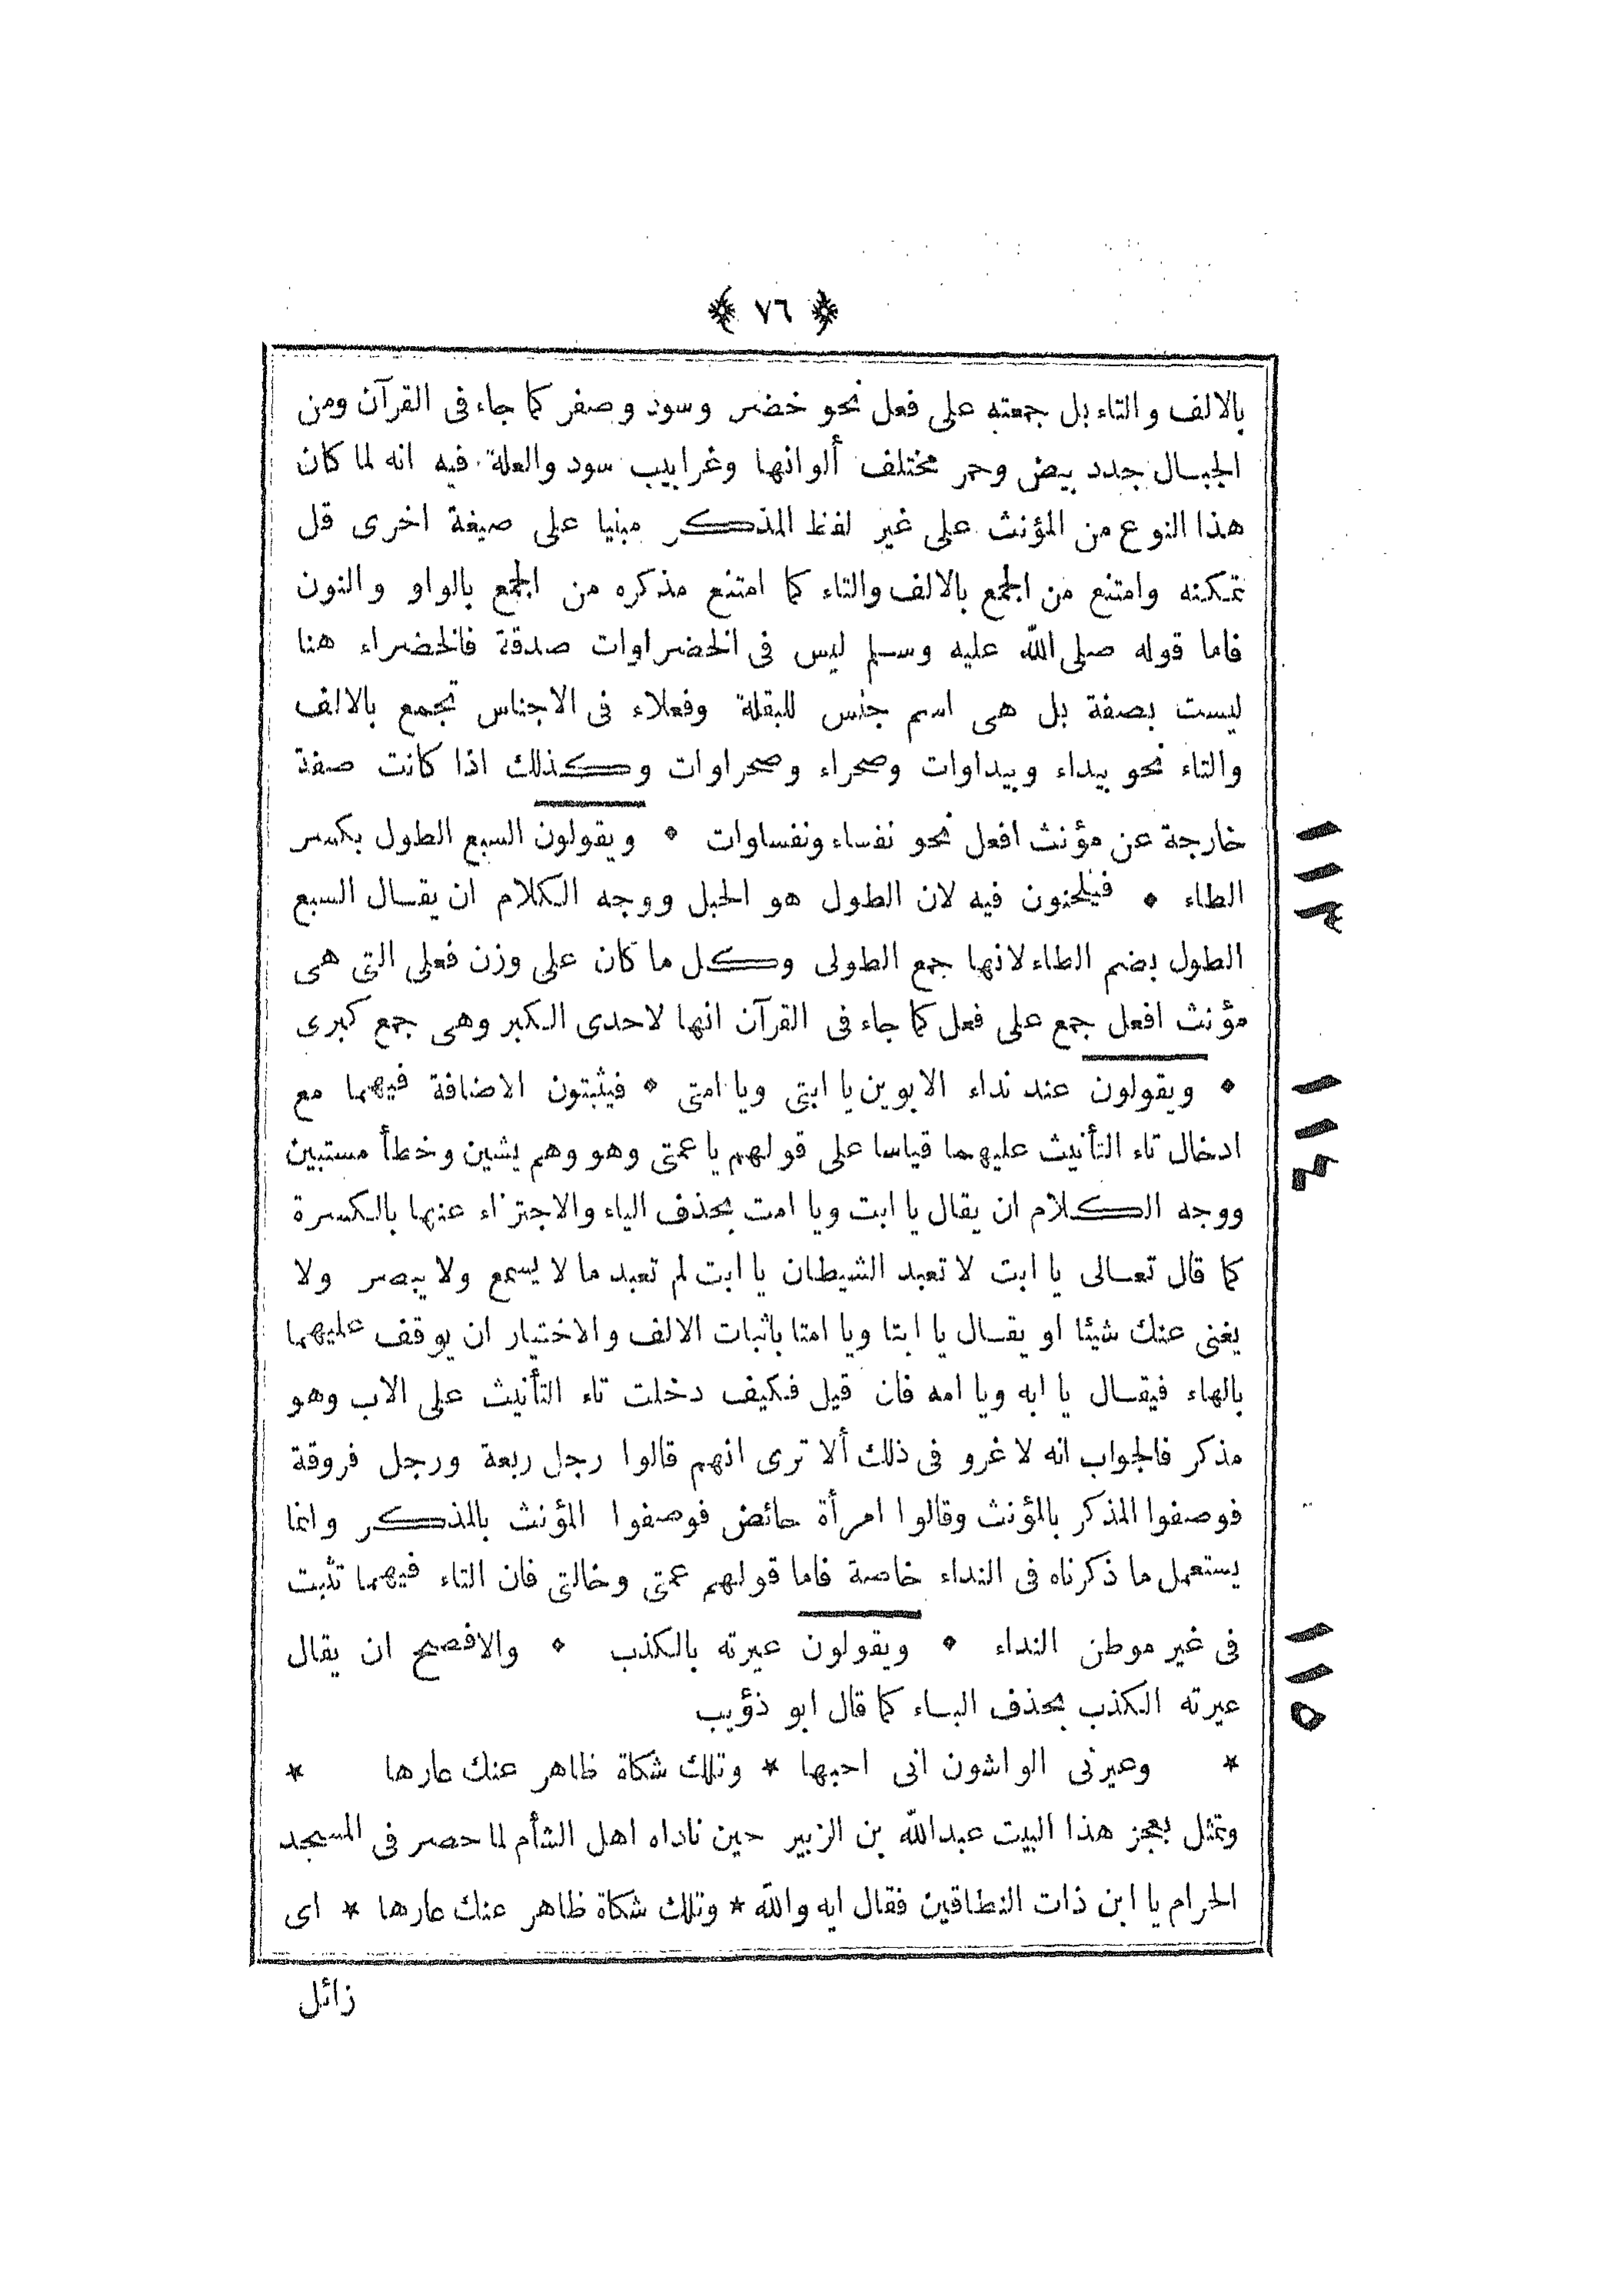 ﴿ ٧٦ ﴾
بالالف والتاء بل جمعته على فعل نحو خضر وسود وصفر كما جاء فى القرآن ومن
الجبال جدد بيض وحمر مختلف ألوانها وغرابيب سود والعلة فيه انه لما كان
هذا النوع من المؤنث على غير لفظ المذكر مبنيا على صيغة اخرى قل
تمكنه وامتنع من الجمع بالالف والتاء كما امتنع مذكره من الجمع بالواو والنون
فاما قوله صلى الله عليه وسلم ليس فى الخضراوات صدقة فالخضراء هنا
ليست بصفة بل هى اسم جنس للبقلة وفعلاء فى الاجناس تجمع بالالف
والتاء نحو بيداء وبيداوات وصحراء وصحراوات وكذلك اذا كانت صفة
خارجة عن مؤنث افعل نحو نفساء ونفساوات * ويقولون السبع الطول بكسر
الطاء * فيلحنون فيه لان الطول هو الحبل ووجه الكلام ان يقال السبع
الطول بضم الطاء لانها جمع الطولى وكل ما كان على وزن فعلى التى هى
مؤنث افعل جمع على فعل كما جاء فى القرآن انها لاحدى الكبر وهى جمع كبرى
* ويقولون عند نداء الابوين يا ابتى ويا امتى * فيثبتون الاضافة فيهما مع
ادخال تاء التأنيث عليهما قياسا على قولهم يا عمتى وهو وهم يشين وخطأ مستبين
ووجه الكلام ان يقال يا ابت ويا امت بحذف الياء والاجتزاء عنها بالكسرة
كما قال تعالى يا ابت لا تعبد الشيطان يا ابت لم تعبد ما لا يسمع ولا يبصر ولا
يغنى عنك شيئا او يقال يا ابتا ويا امتا باثبات الالف والاختيار ان يوقف عليهما
بالهاء فيقال يا ابه ويا امه فان قيل فكيف دخلت تاء التأنيث على الاب وهو
مذكر فالجواب انه لا غرو فى ذلك ألا ترى انهم قالوا رجل ربعة ورجل فروقة
فوصفوا المذكر بالمؤنث وقالوا امرأة حائض فوصفوا المؤنث بالمذكر وانما
يستعمل ما ذكرناه فى النداء خاصة فاما قولهم عمتى وخالتى فان التاء فيهما تثبت
فى غير موطن النداء * ويقولون عيرته بالكذب * والافصح ان يقال
عيرته الكذب بحذف الباء كما قال ابو ذؤيب
* وعيرنى الواشون انى احبها * وتلك شكاة ظاهر عنك عارها *
وتمثل بعجز هذا البيت عبدالله بن الزبير حين ناداه اهل الشأم لما حصر فى المسجد
الحرام يا ابن ذات النطاقين فقال ايه والله * وتلك شكاة ظاهر عنك عارها * اى
زائل
١١٣
١١٤
١١٥